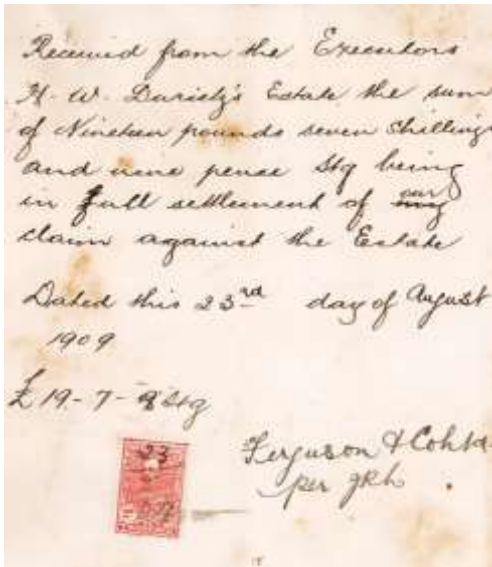 Received from the Executors
H. W. Darietz's Estate the sum
of Nineteen pounds seven Shillings
and nine pence Stg being
in full settlement of our
claim against the Estate
Dated this 23rd day of August
1909
£19-7-9 Stg
Ferguson & Co Ltd
per
23